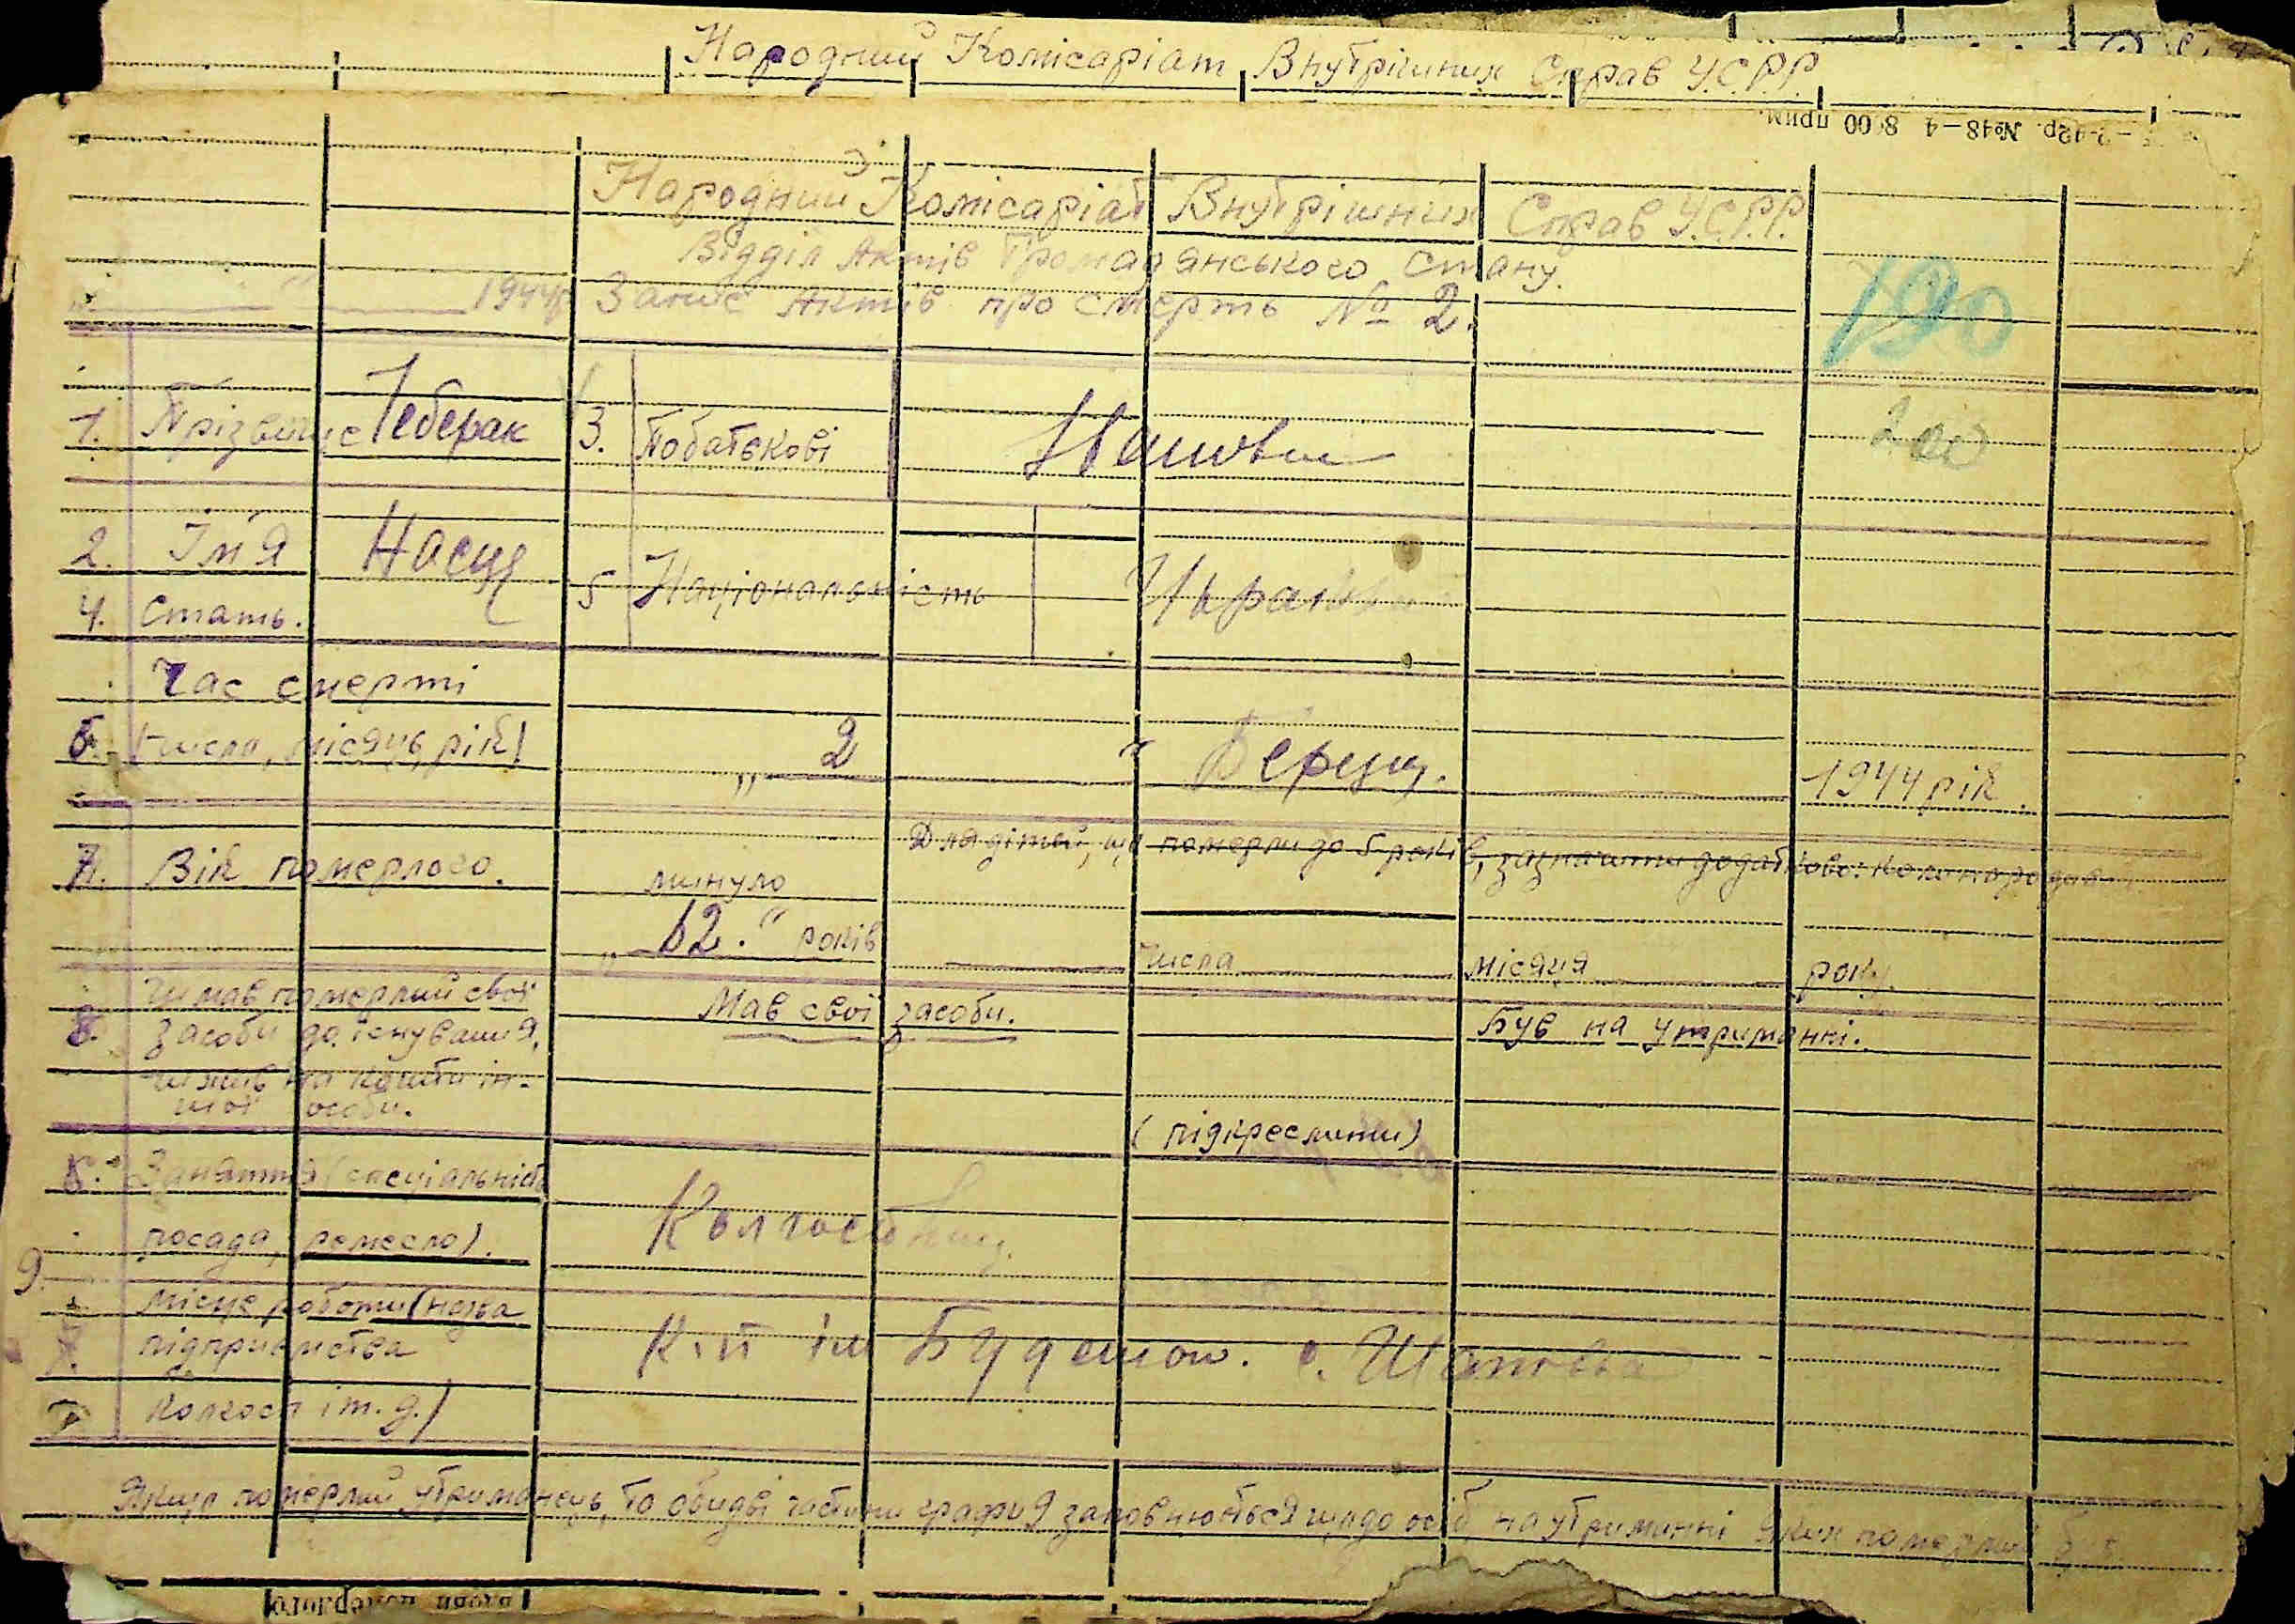 Народний Комісаріат Внутрішних Справ У.С.Р.Р.
№48-4 8.00 прим.
Народний Комісаріат Внутрішних Справ У.С.Р.Р.
Відділ Актів Громадянського Стану.
1944р Запис Актів про смерть № 2.
190
1. Прізвище Чеберак 3. Побатькові
200
2. Ім'я 5 Національність
4. Стать.
Час смерті
6. (число, місяць, рік) „ 2 “ 1944 рік.
7. Вік померлого. минуло Для дітей, що померли до 5 років, зазначити додатково: коли народив
„ 62. “ років числа місяця року.
Чи мав померлий свої Мав свої засоби. Був на утриманні.
8. засоби до існування,
чи жив на кошти ін-
шої особи. (підкреслити)
Заняття (спеціальність
посада, ремесло).
9.
Місце роботи (назва
підприємства К-п ім
колгосп і т. д.)
Якщо померлий утриманець, то обидві частини графи 9 заповнюються щодо осіб на утриманні яких померлий був.